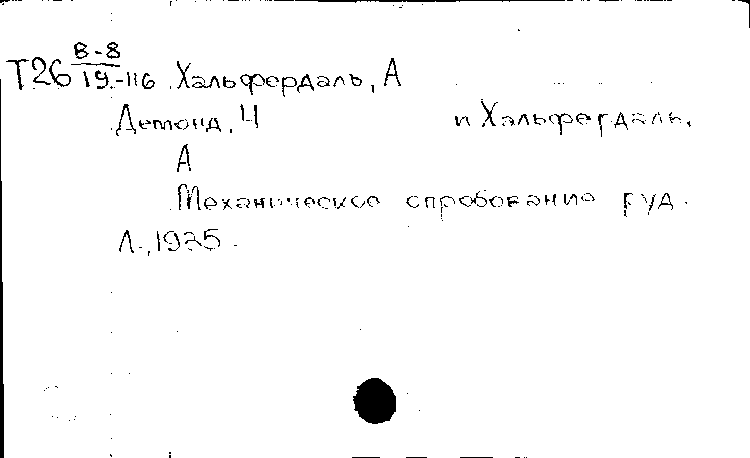 В-8
Т26 19-116 Хальфердаль, А
Детонд, Ч и Хальфердаль,
А
Механическое спробование руд.
Л., 1925.